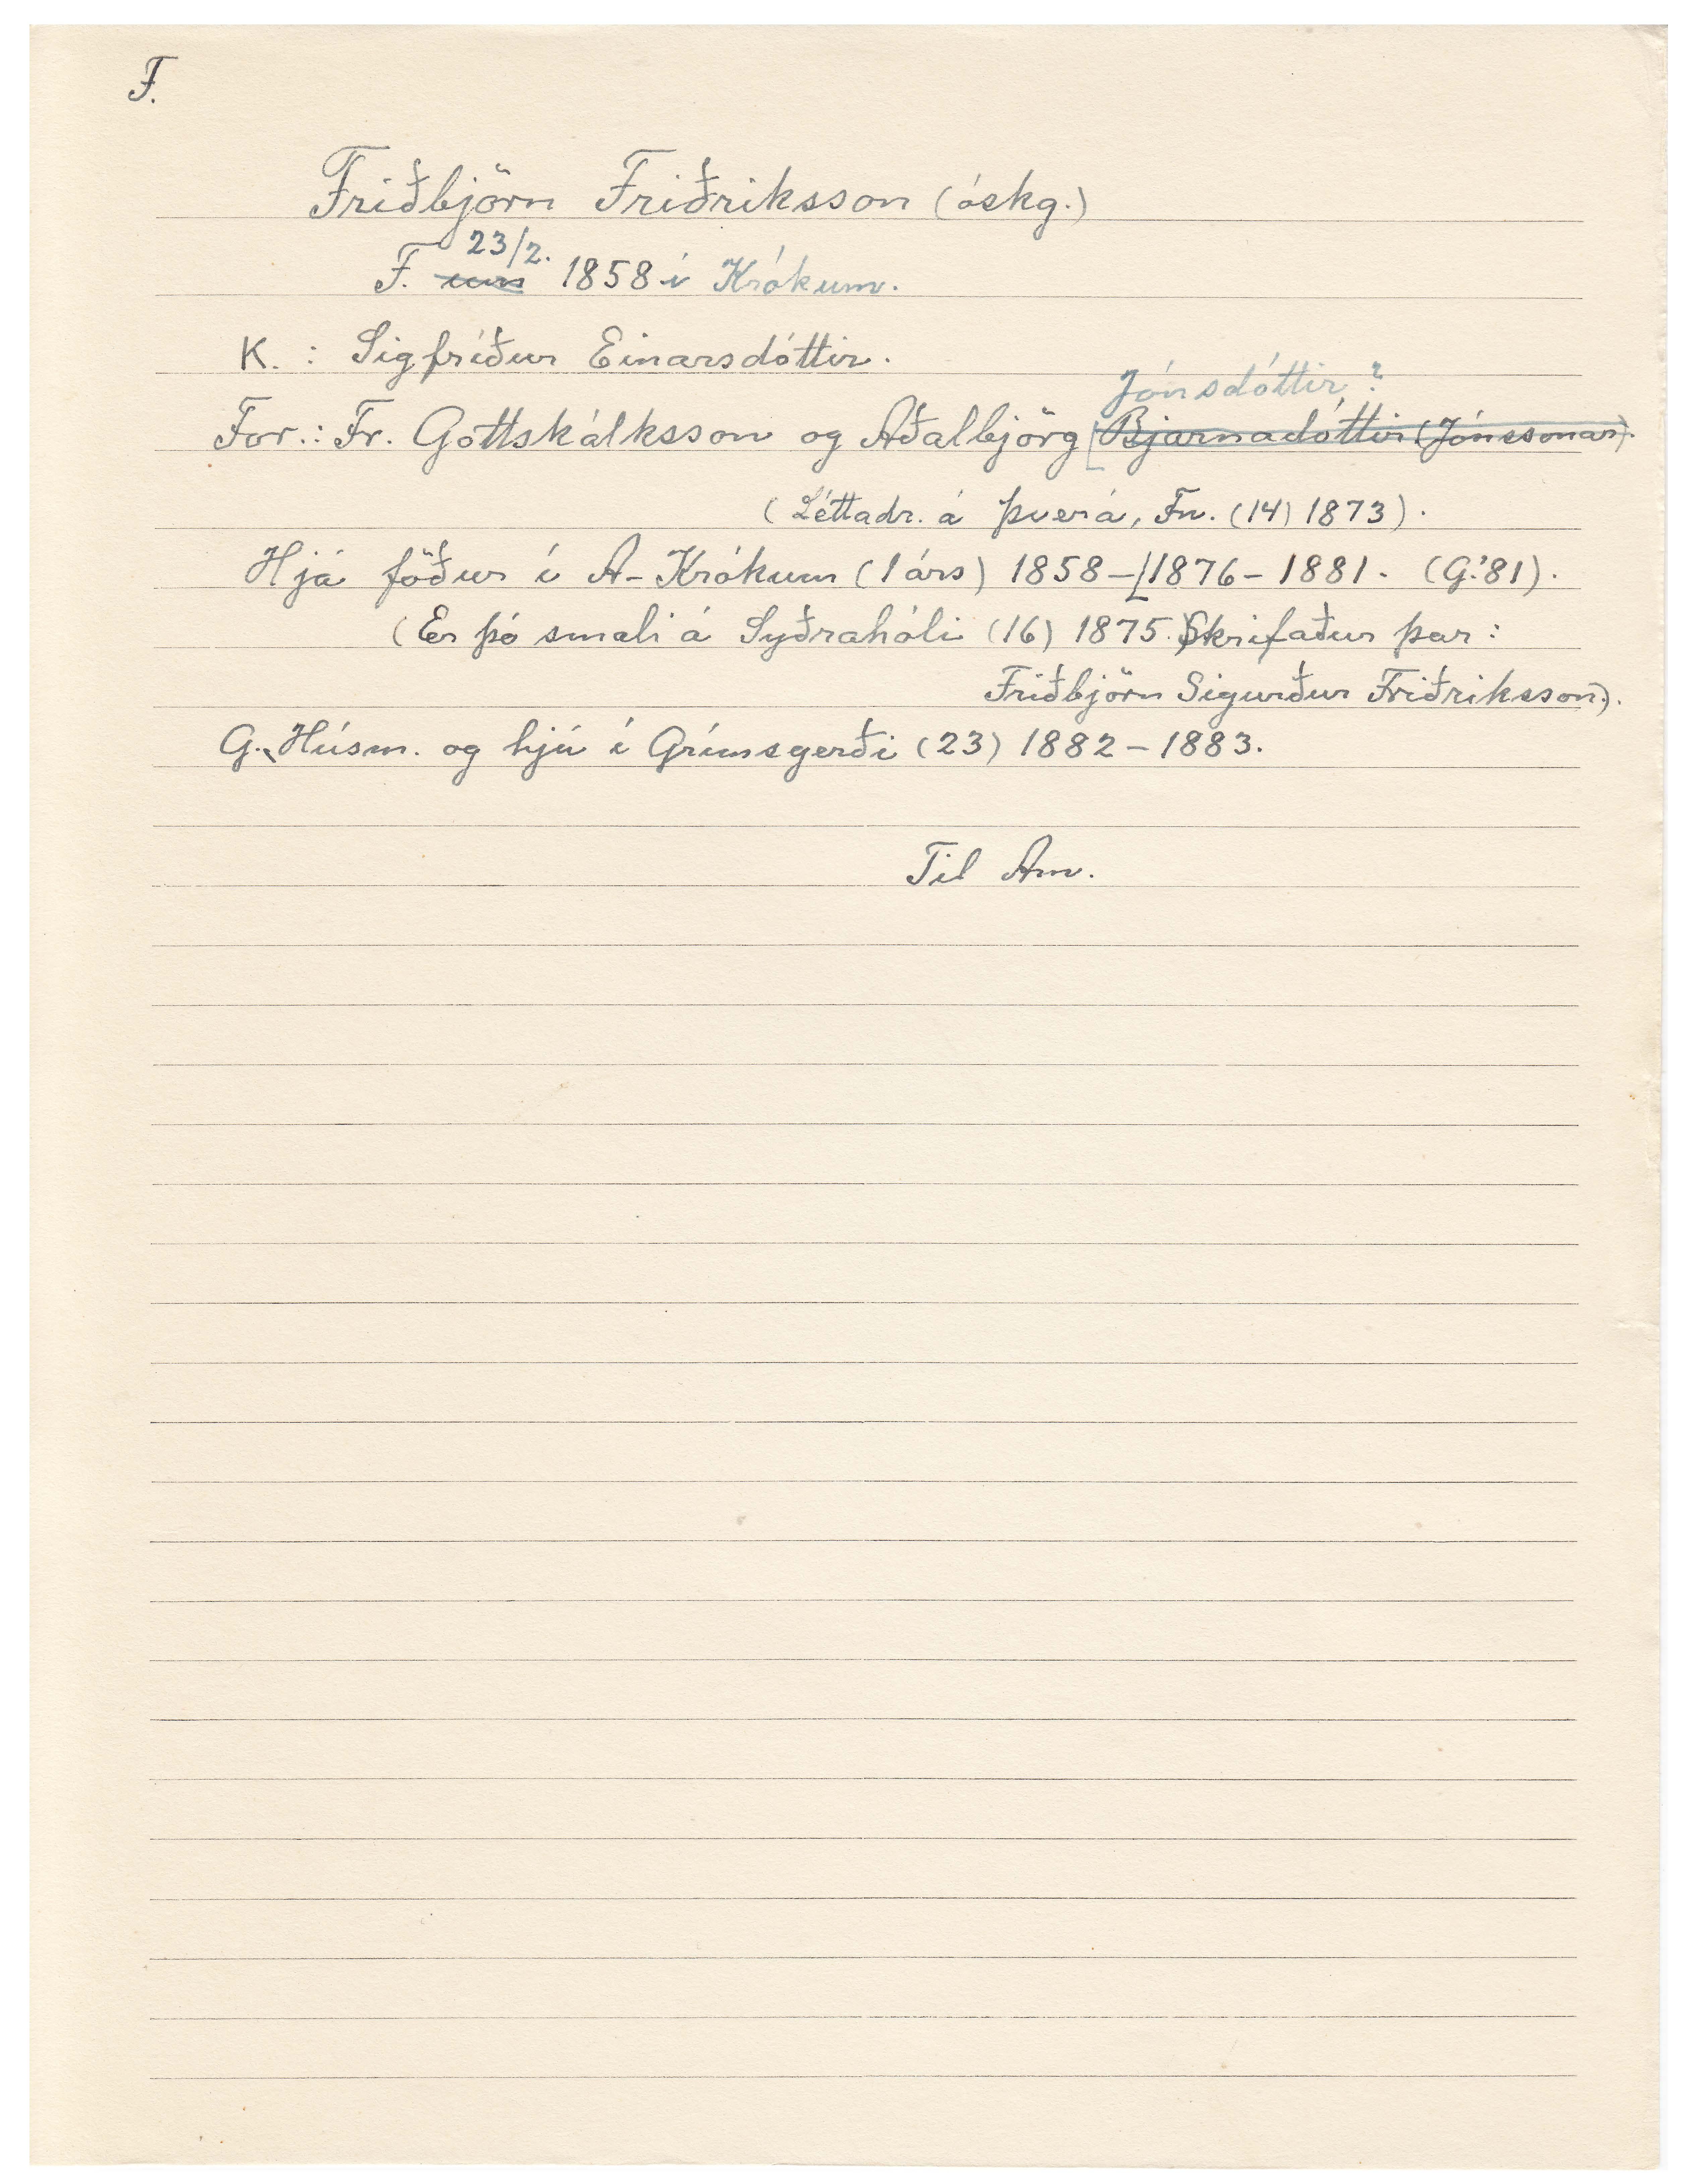 F.
Friðbjörn Friðriksson (óskg.)
23/2.
F. 1858 í Krókum.
K. : Sigfríður Einarsdóttir.
Jónsdóttir?
For.: Fr. Gottskálksson og Aðalbjörg [Bjarnadóttir (Jónssonar).
(Léttadr. á Þverá, Fn. (14) 1873).
Hjá föður í A-Krókum (1 árs) 1858-[1876-1881. (G.'81).
(Er þó smali á Syðrahóli (16) 1875. Skrifaður þar:
Friðbjörn Sigurður Friðriksson).
G. Húsm. og hjú í Grímsgerði (23) 1882-1883.
Til Am.